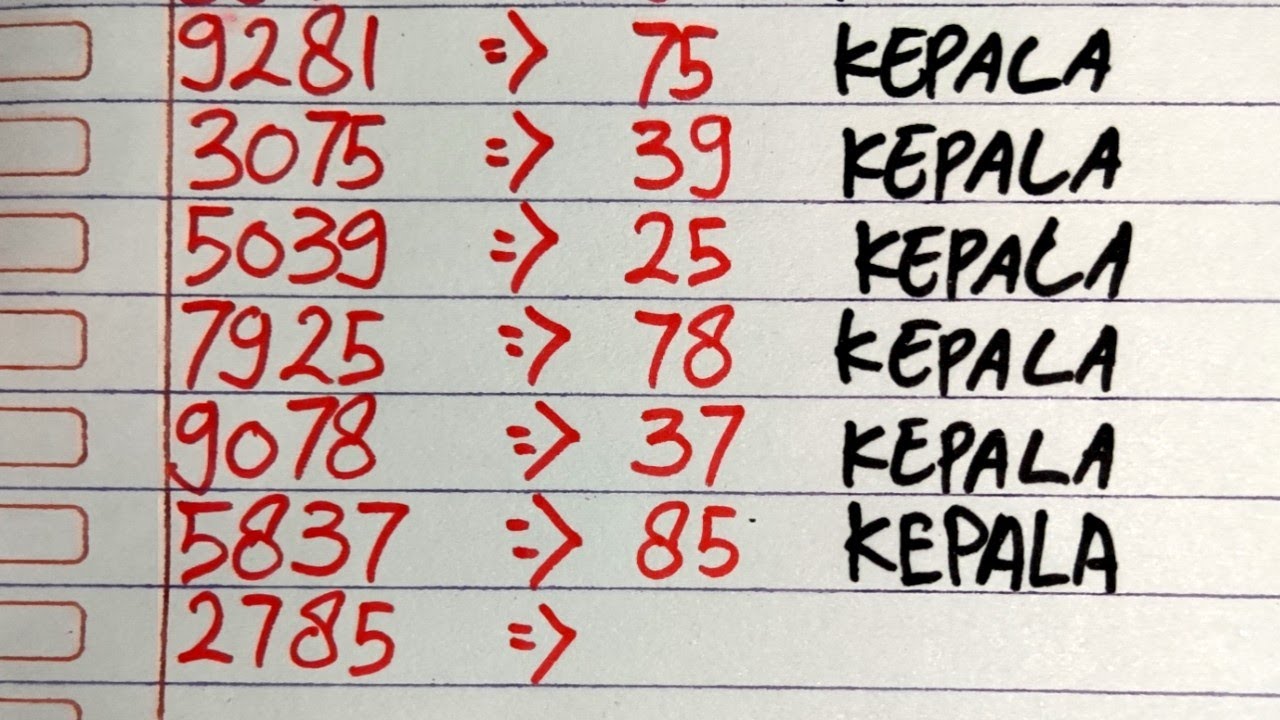 9281 => 75 KEPALA
3075 => 39 KEPALA
5039 => 25 KEPALA
7925 => 78 KEPALA
9078 => 37 KEPALA
5837 => 85 KEPALA
2785 =>